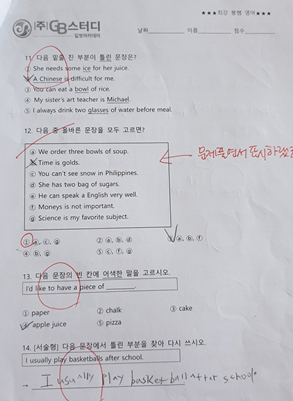 ★★★최강 동행 영어★★★
(주)GB스터디
날짜 이름 점수
11. 다음 밑줄 친 부분이 틀린 문장은?
① She needs some ice for her juice.
② A Chinese is difficult for me.
③ You can eat a bowl of rice.
④ My sister's art teacher is Michael.
⑤ I always drink two glasses of water before meal.
12. 다음 중 올바른 문장을 모두 고르면?
ⓐ We order three bowls of soup.
ⓑ Time is golds.
ⓒ You can't see snow in Philippines.
ⓓ She has two bag of sugars.
ⓔ He can speak a English very well.
ⓕ Moneys is not important.
ⓖ Science is my favorite subject.
① a, c, g ② a, b, d ③ a, b, f
④ b, g ⑤ c, f, g
13. 다음 문장의 빈 칸에 어색한 말을 고르시오.
I'd like to have a piece of ________.
① paper ② chalk ③ cake
④ apple juice ⑤ pizza
14. [서술형] 다음 문장에서 틀린 부분을 찾아 다시 쓰시오.
I usually play basketballs after school.
→ I usually play basketball after school